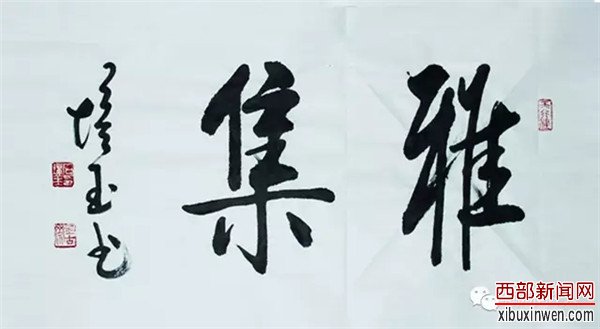 雅集
培玉书
西部新闻网
xibuxinwen.com